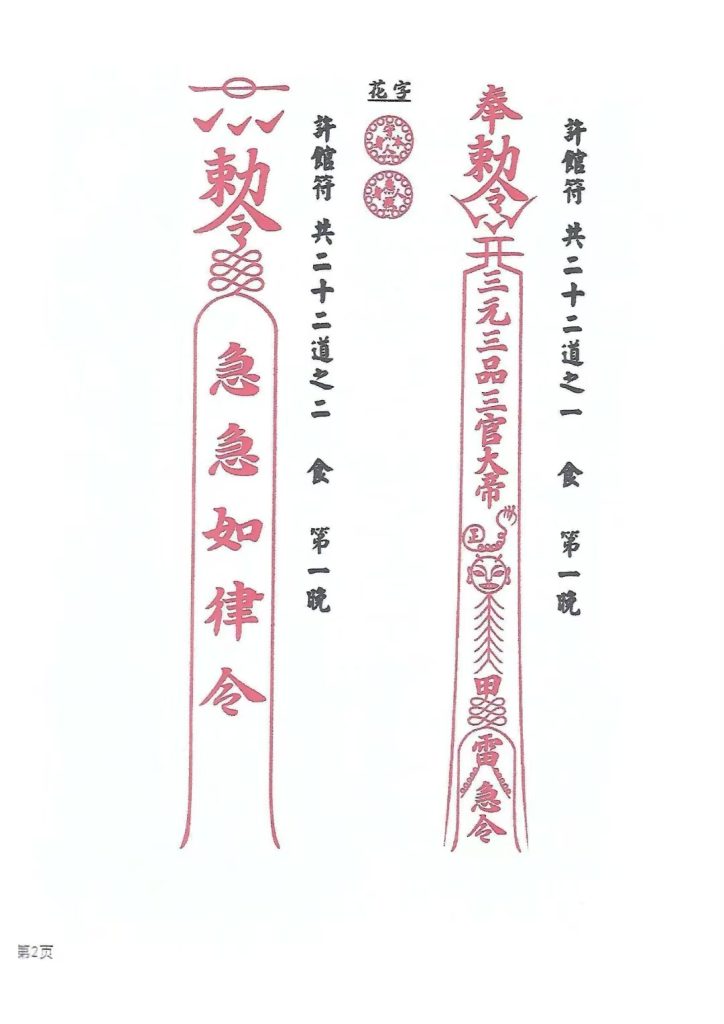 許館符 共二十二道之一 食 第一晚
奉
勅令
开
三元三品三官大帝
正
甲
雷
急令
花字
許館符 共二十二道之二 食 第一晚
勅令
急急如律令
第2页